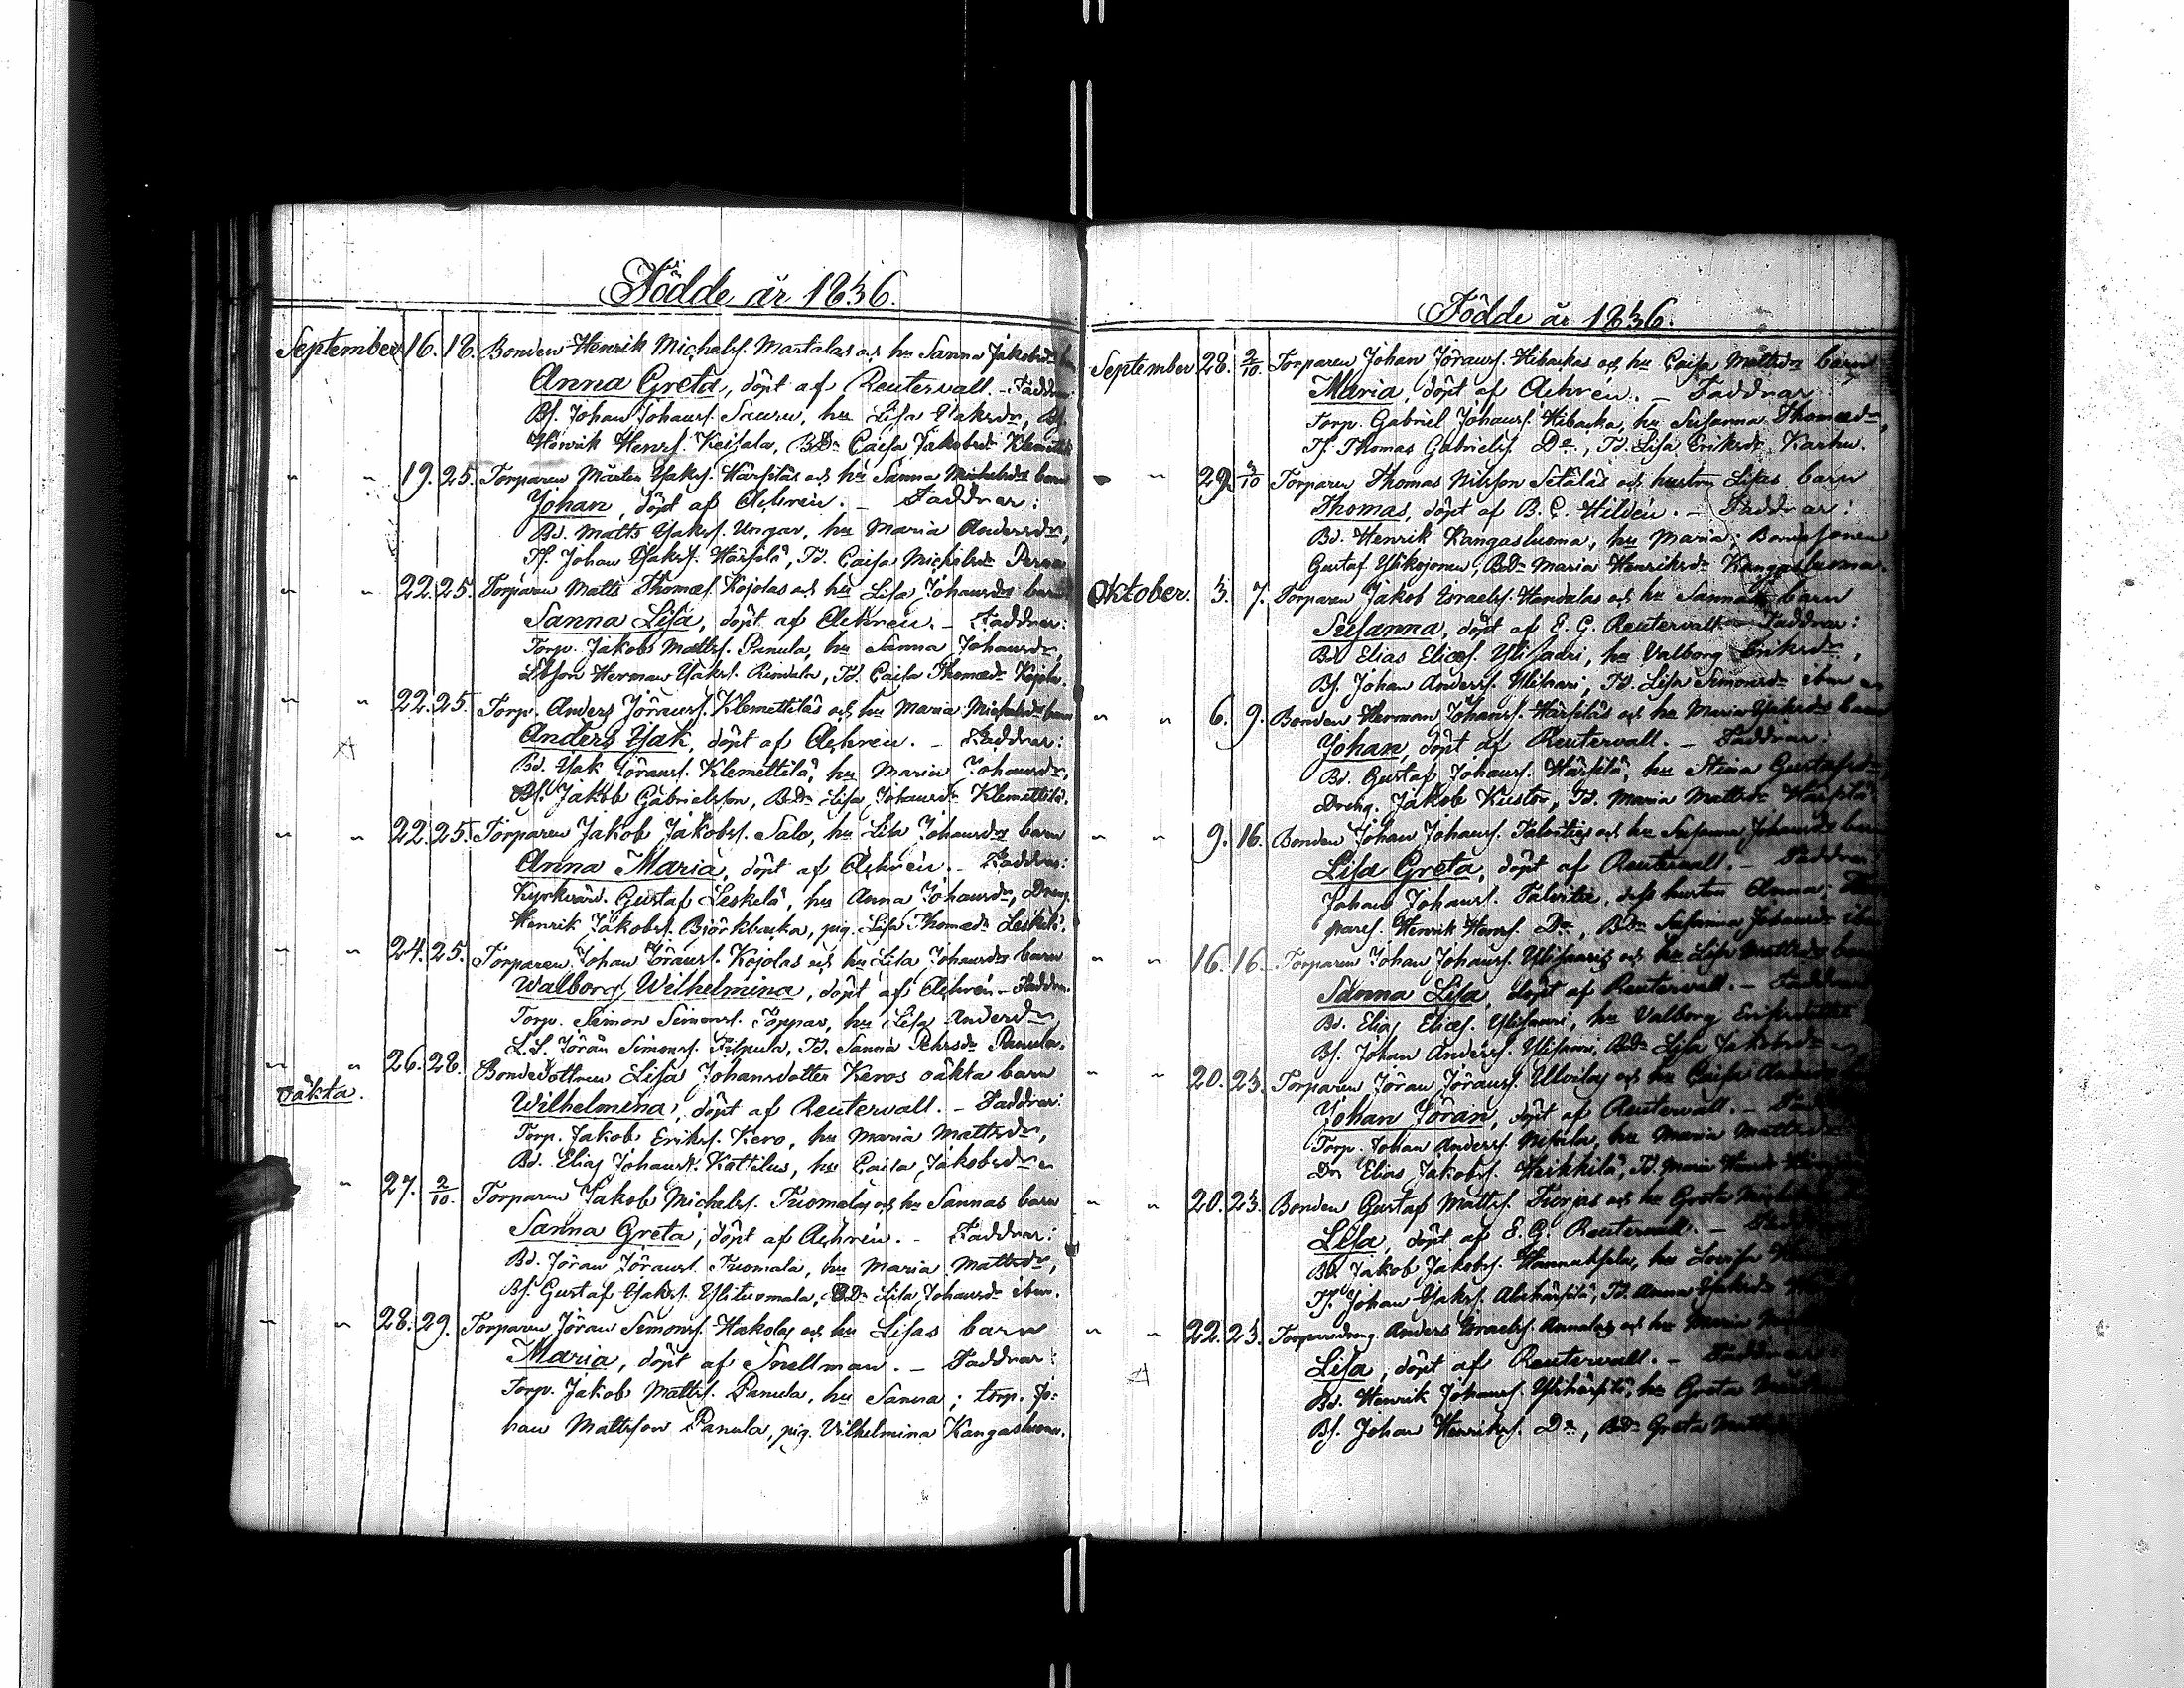 Födde år 1836.
September 16. 18. Bonden Henrik Michelss. Martalas och hu Sanna Jakobsdrs
Anna Greta, döpt af Reutervall. - Faddrar
Bs. Johan Johanss. Sauru, hu Lisa Isaksdr, Bs.
Henrik Henrs. Keisala, BDr Caisa Jakobsdr
" " 19. 25. Torparen Mårten Isaks. Härsiläs och hu Sanna Michelsdrs barn
Johan, döpt af Achrén. - Faddrar:
Bd. Matts Isaks. Ungar, hu Maria Andersdr,
Ts. Johan Isaks. Härsilä, Td. Caisa Michelsdr
" " 22. 25. Torparen Matts Thomæs. Kojolas och hu Lisa Johansdrs barn
Sanna Lisa, döpt af Achrén. - Faddrar:
Torp. Jakob Mattss. Panula, hu Sanna Johansdr,
Herman Isaks. Rindala, Td. Caisa Thomædr Kojola.
" " 22. 25. Torp. Anders Jöranss. Klemettiläs och hu Maria Michelsdrs barn
Anders Isak, döpt af Achrén. - Faddrar:
Bd. Isak Jöranss. Klemettilä, hu Maria Johansdr,
Bs. Jakob Gabrielsson, BDr Lisa Johansdr Klemettilä.
" " 22. 25. Torparen Jakob Jakobs. Salo, hu Lisa Johansdrs barn
Anna Maria, döpt af Achrén. - Faddrar:
Kyrkvärd. Gustaf Leskelä, hu Anna Johansdr, Dreng.
Henrik Jakobs. Björkbacka, pig. Lisa Thomædr Leskelä.
" " 24. 25. Torparen Johan Jöranss. Kojolas och hu Lisa Johansdrs barn
Walborg Wilhelmina, döpt af Achrén - Faddrar.
Torp. Simon Simonss. Joppas, hu Lisa Andersdr
L.S. Jöran Simonss. Filpula, Td. Sanna Pehrsdr Panula.
" " 26. 28. Bondedottren Lisa Johansdotter Keros oäkta barn
oäkta.
Wilhelmina, döpt af Reutervall. - Faddrar:
Torp. Jakob Erikss. Kero, hu Maria Mattsdr,
Bd. Elias Johanss. Kattilus, hu Caisa Jakobsdr
" 27. 2/10. Torparen Jakob Michelss. Tuomalas och hu Sannas barn
Sanna Greta, döpt af Achrén. - Faddrar:
Bd. Jöran Jöranss. Tuomala, hu Maria Mattsdr,
Bs. Gustaf Isaks. Ylituomala, BDr Lisa Johansdr ibm.
" " 28. 29. Torparen Jöran Simonss. Hakolas och hu Lisas barn
Maria, döpt af Snellman. - Faddrar:
Torp. Jakob Mattss. Panula, hu Sanna; torp. Jo-
han Mattsson Panula, pig. Vilhelmina Kangasluoma.
Födde år 1836.
September 28. 2/10. Torparen Johan Jöranss. Hibackas och hu Caisa Mattsdrs barn
Maria, döpt af Achrén. - Faddrar
Torp. Gabriel Johanss. Hibacka, hu Susanna Thomædr,
Ts. Thomas Gabrielss. Do, Td. Lisa Eriksdr Karhu.
" " 29. 3/10 Torparen Thomas Nilsson Setäläs och hustru Lisas barn
Thomas, döpt af B. C. Hildén. - Faddrar:
Bd. Henrik Kangasluoma, hu Maria; Bondesonen
Gustaf Ylikojonen, BDr Maria Henriksdr Kangasluoma.
Oktober. 3. 7. Torparen Jakob Israelss. Handalas och hu Sannas barn
Susanna, döpt af E. G. Reutervall - Faddrar:
Bd. Elias Eliæs. Ylisaari, hu Valborg Eriksdr,
Bs. Johan Anderss. Ylisaari, Td. Lisa Simonsdr ibm
" " 6. 9. Bonden Herman Johanss. Härsiläs och hu Maria Isaksdrs barn
Johan, döpt af Reutervall. - Faddrar:
Bd. Gustaf Johanss. Härsilä, hu Stina Gustafsdr
Dreng. Jakob Kusto, Td. Maria Mattsdr Härsilä.
" " 9. 16. Bonden Johan Johanss. Talvities och hu Susanna Johansdrs barn
Lisa Greta, döpt af Reutervall. - Faddrar:
Johan Johanss. Talvitie, dess hustru Anna;
pares. Henrik Henrs. Do, BDr Susanna Johansdr ibm.
" " 16. 16. Torparen Johan Johanss. Ylisaaris och hu Lisa Mattsdrs barn
Sanna Lisa, döpt af Reutervall. - Faddrar
Bd. Elias Eliæs. Ylisaari, hu Valborg Eriksdotter
Bs. Johan Anderss. Ylisaari, BDr Lisa Jakobsdr
" " 20. 23. Torparen Jöran Jöranss. Ulvilas och hu Caisa
Johan Jöran, döpt af Reutervall. -
Torp. Johan Anderss. hu Maria Mattsdr
Dr Elias Jakobs. Heikkilä, Td. Maria
" " 20. 23. Bonden Gustaf Mattss. och hu Greta
Lisa, döpt af E. G. Reutervall. -
Bd. Jakob Jakobs. Hannuksela, hu Lovisa
Ts. Johan Isaks. Alahärsilä, Td. Anna Isaksdr
" " 22. 23. Torparedreng Anders Israelss. och hu Maria
Lisa, döpt af Reutervall. - Faddrar:
Bd. Henrik Johanss. Ylihärsilä, hu Greta
Bs. Johan Henrikss. Do, BDr Greta